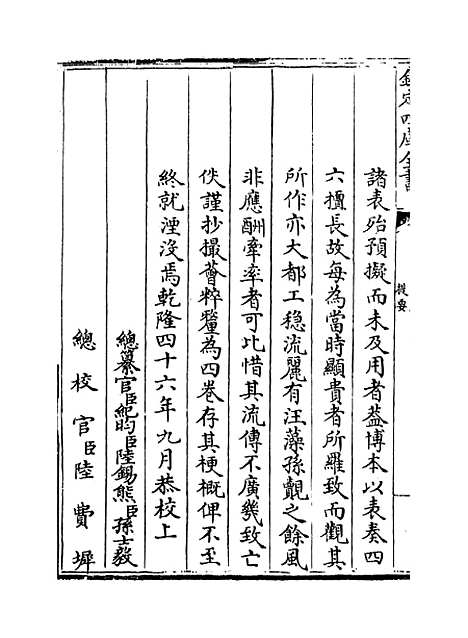 欽定四庫全書
提要
諸表殆預擬而未及用者葢博本以表奏四
六擅長故每為當時顯貴者所羅致而觀其
所作亦大都工穏流麗有汪藻孫覿之餘風
非應酬牽率者可比惜其流傳不廣幾致亡
佚謹抄撮薈粹釐為四卷存其梗概俾不至
終就湮沒焉乾隆四十六年九月恭校上
總纂官臣紀昀臣陸錫熊臣孫士毅
總校官臣陸費墀